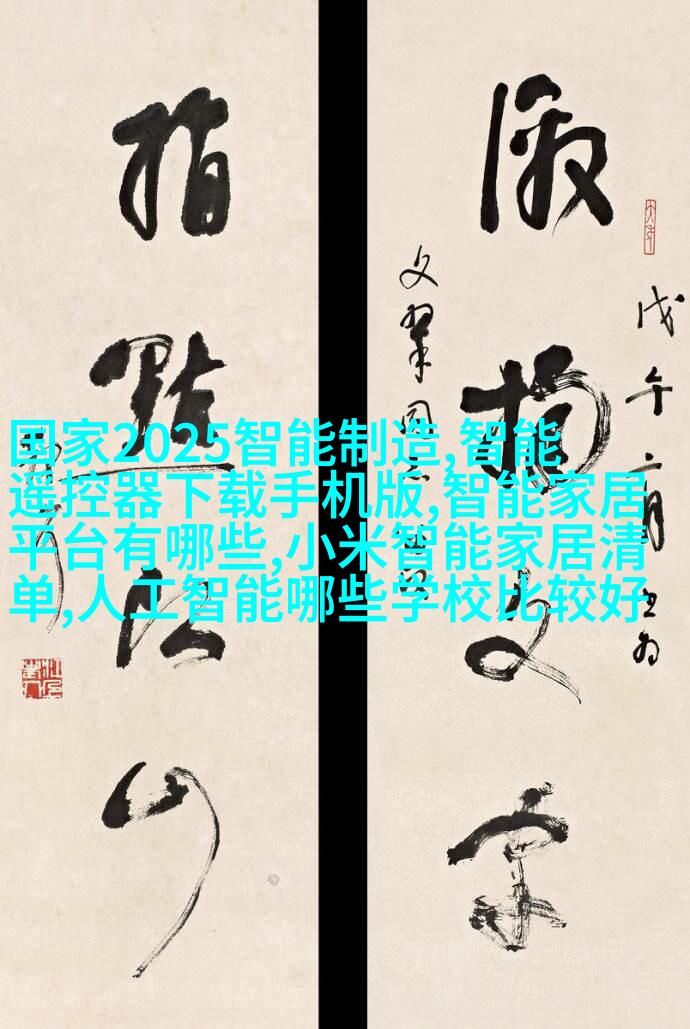 国家2025智能制造,智能
遥控器下载手机版,智能家居
平台有哪些,小米智能家居清
单,人工智能哪些学校比较好
戊午二月
激揚文字
文翠同志
指點江山